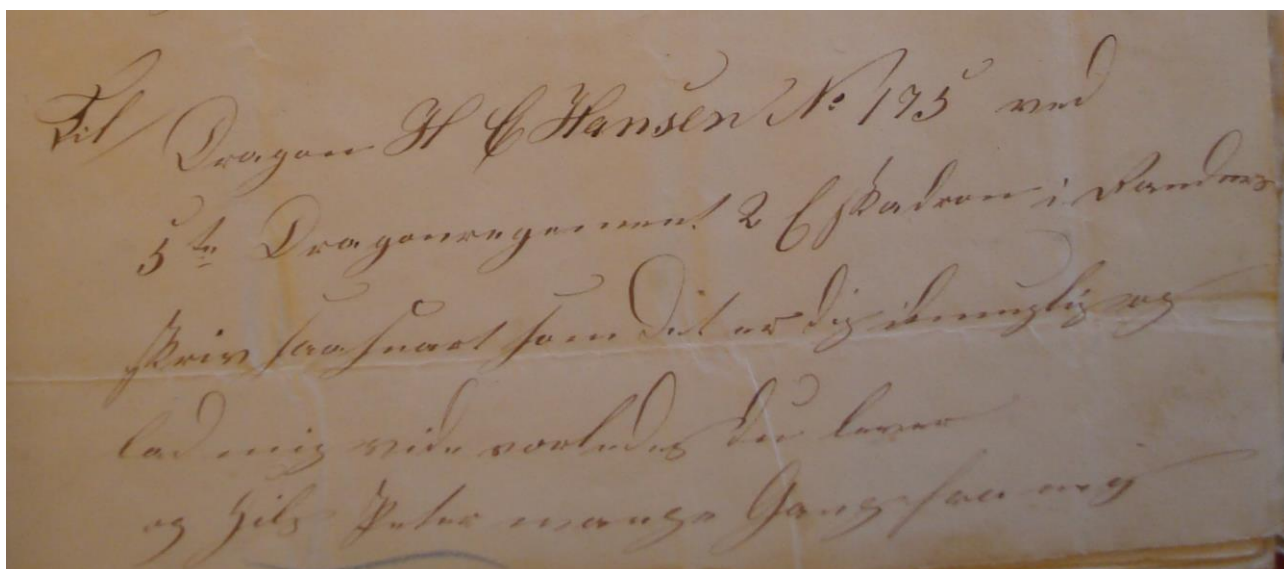 Til Dragon H C Hansen No 175 ved
5te Dragonregement 2 Eskadron i Randers
skriv saasnart som Det er dig muglig og
lad mig vide vorledes du lever
og Hils Peter mange Gange fra mig